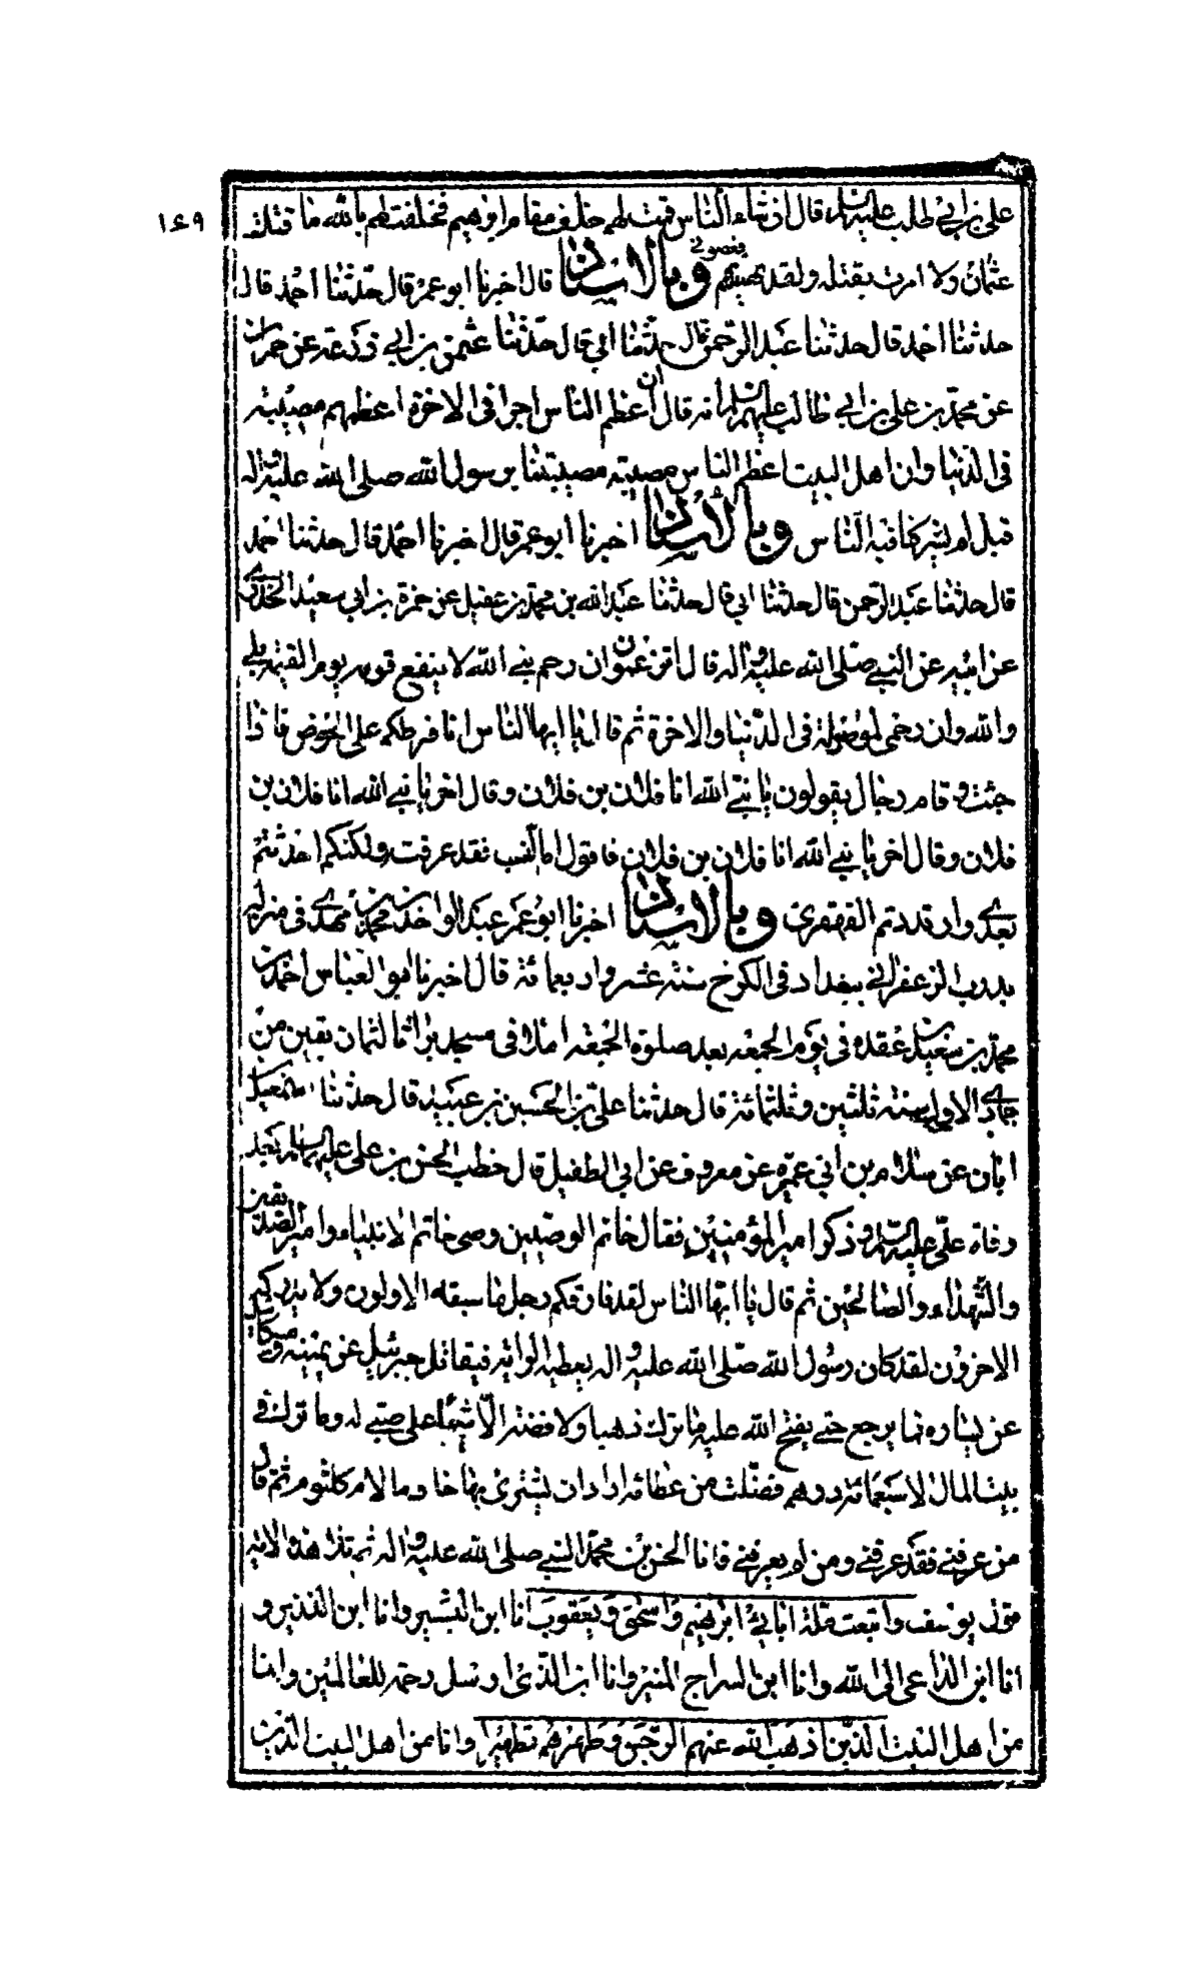 ١٤٩
علي بن ابي طلب عليه السلم قال اذ شاء الناس قمت لهم خلف مقام ابراهيم فحلفت لهم بالله ما قتلت
عثمان ولا امرت بقتله ولقد نهيتهم فعصوني وبالاسناد قال اخبرنا ابو عمر قال حدثنا احمد قال
حدثنا احمد قال حدثنا عبد الرحمن قال حدثنا ابي قال حدثنا عثمن بن ابي زرعة عن حمران
عن محمد بن علي بن ابي طالب عليهم السلم انه قال ان اعظم الناس اجرا في الاخرة اعظمهم مصيبة
في الدنيا وان اهل البيت اعظم الناس مصيبة مصيبتنا برسول الله صلى الله عليه واله
قبل ثم يشركنا فيه الناس وبالاسناد اخبرنا ابو عمر قال اخبرنا احمد قال حدثنا احمد
قال حدثنا عبد الرحمن قال حدثنا ابي قال حدثنا عبد الله بن محمد بن عقيل عن حمزة بن ابي سعيد الخدري
عن ابيه عن النبي صلى الله عليه واله قال اتزعمون ان رحم نبي الله لا ينفع قومه يوم القيمة بلى
والله وان رحمي لموصولة في الدنيا والاخرة ثم قال يا ايها الناس انا فرطكم على الحوض فاذا
جئت وقام رجال يقولون يا نبي الله انا فلان بن فلان وقال اخر يا نبي الله انا فلان بن
فلان وقال اخر يا نبي الله انا فلان بن فلان فاقول اما النسب فقد عرفت ولكنكم احدثتم
بعدي وارتددتم القهقرى وبالاسناد اخبرنا ابو عمر عبد الواحد بن محمد بن مهدي في منزله
بدرب الزعفراني ببغداد في الكرخ سنة عشر واربعمائة قال اخبرنا ابو العباس احمد بن
محمد بن سعيد بن عقدة في يوم الجمعة بعد صلوة الجمعة املا في مسجد براثا لثمان بقين من
جمادي الاولى سنة ثلثين وثلثمائة قال حدثنا علي بن الحسين بن عبيد قال حدثنا اسمعيل بن
ابان عن سلام بن ابي عمرة عن معروف عن ابي الطفيل قال خطب الحسن بن علي عليهما السلام بعد
وفاة علي عليه السلم وذكر امير المؤمنين فقال خاتم الوصيين وصي خاتم الانبياء وامير الصديقين
والشهداء والصالحين ثم قال يا ايها الناس لقد فارقكم رجل ما سبقه الاولون ولا يدركه
الاخرون لقد كان رسول الله صلى الله عليه واله يعطيه الراية فيقاتل جبرئيل عن يمينه وميكائيل
عن يساره فما يرجع حتى يفتح الله عليه ما ترك ذهبا ولا فضة الا شيئا على صبي له وما ترك في
بيت المال الا سبعمائة درهم فضلت من عطائه اراد ان يشتري بها خادما لام كلثوم ثم قال
من عرفني فقد عرفني ومن لم يعرفني فانا الحسن بن محمد النبي صلى الله عليه واله ثم تلا هذه الاية
قول يوسف واتبعت ملة ابائي ابرهيم واسحق ويعقوب انا ابن البشير وانا ابن النذير و
انا ابن الداعي الى الله وانا ابن السراج المنير وانا ابن الذي ارسل رحمة للعالمين وانا
من اهل البيت الذين اذهب الله عنهم الرجس وطهرهم تطهيرا وانا من اهل البيت الذين